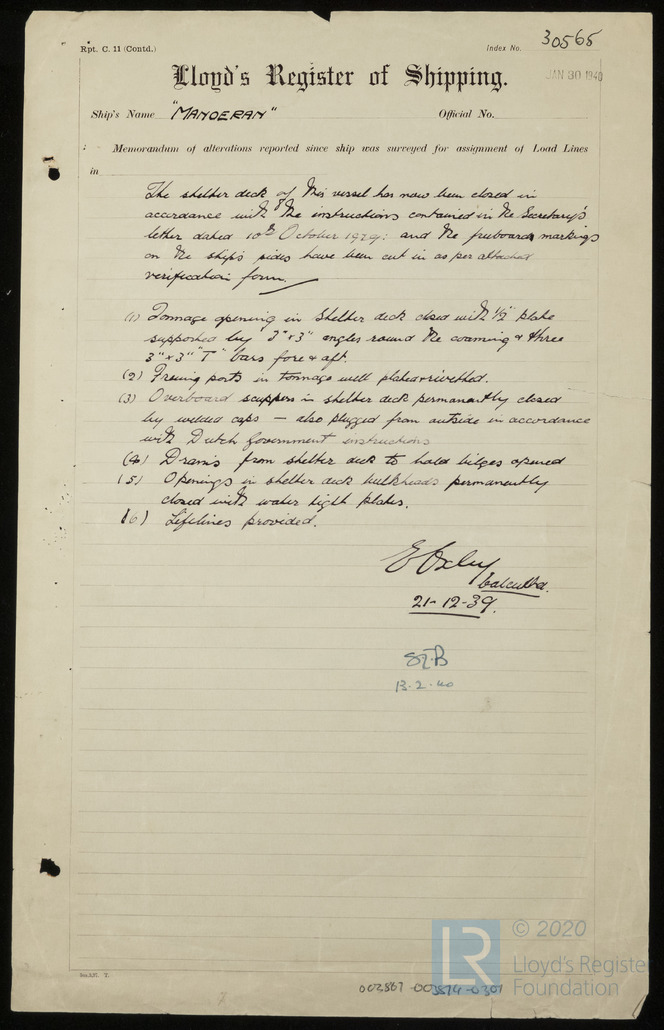 Rpt. C. 11 (Contd.)
Index No. 30565
JAN 30 1940
Lloyd's Register of Shipping.
Ship's Name "MANOERAN" Official No.
Memorandum of alterations reported since ship was surveyed for assignment of Load Lines
in
The shelter deck of this vessel has now been closed in
accordance with the instructions contained in the Secretary's
letter dated 10th October 1939: and the freeboard markings
on the ship's sides have been cut in as per attached
verification form.
(1) Tonnage opening in shelter deck closed with ½" plate
supported by 3" x 3" angles round the coaming & three
3" x 3" "T" bars fore & aft.
(2) Freeing ports in tonnage well plated & rivetted.
(3) Overboard scuppers in shelter deck permanently closed
by welded caps — also plugged from outside in accordance
with Dutch Government instructions
(4) Drains from shelter deck to hold bilges opened
(5) Openings in shelter deck bulkheads permanently
closed with water tight plates.
(6) Lifelines provided.
E Oxley
Calcutta.
21-12-39.
13-2-40
T.
002867-003874-0301
LR
© 2020
Lloyd's Register
Foundation